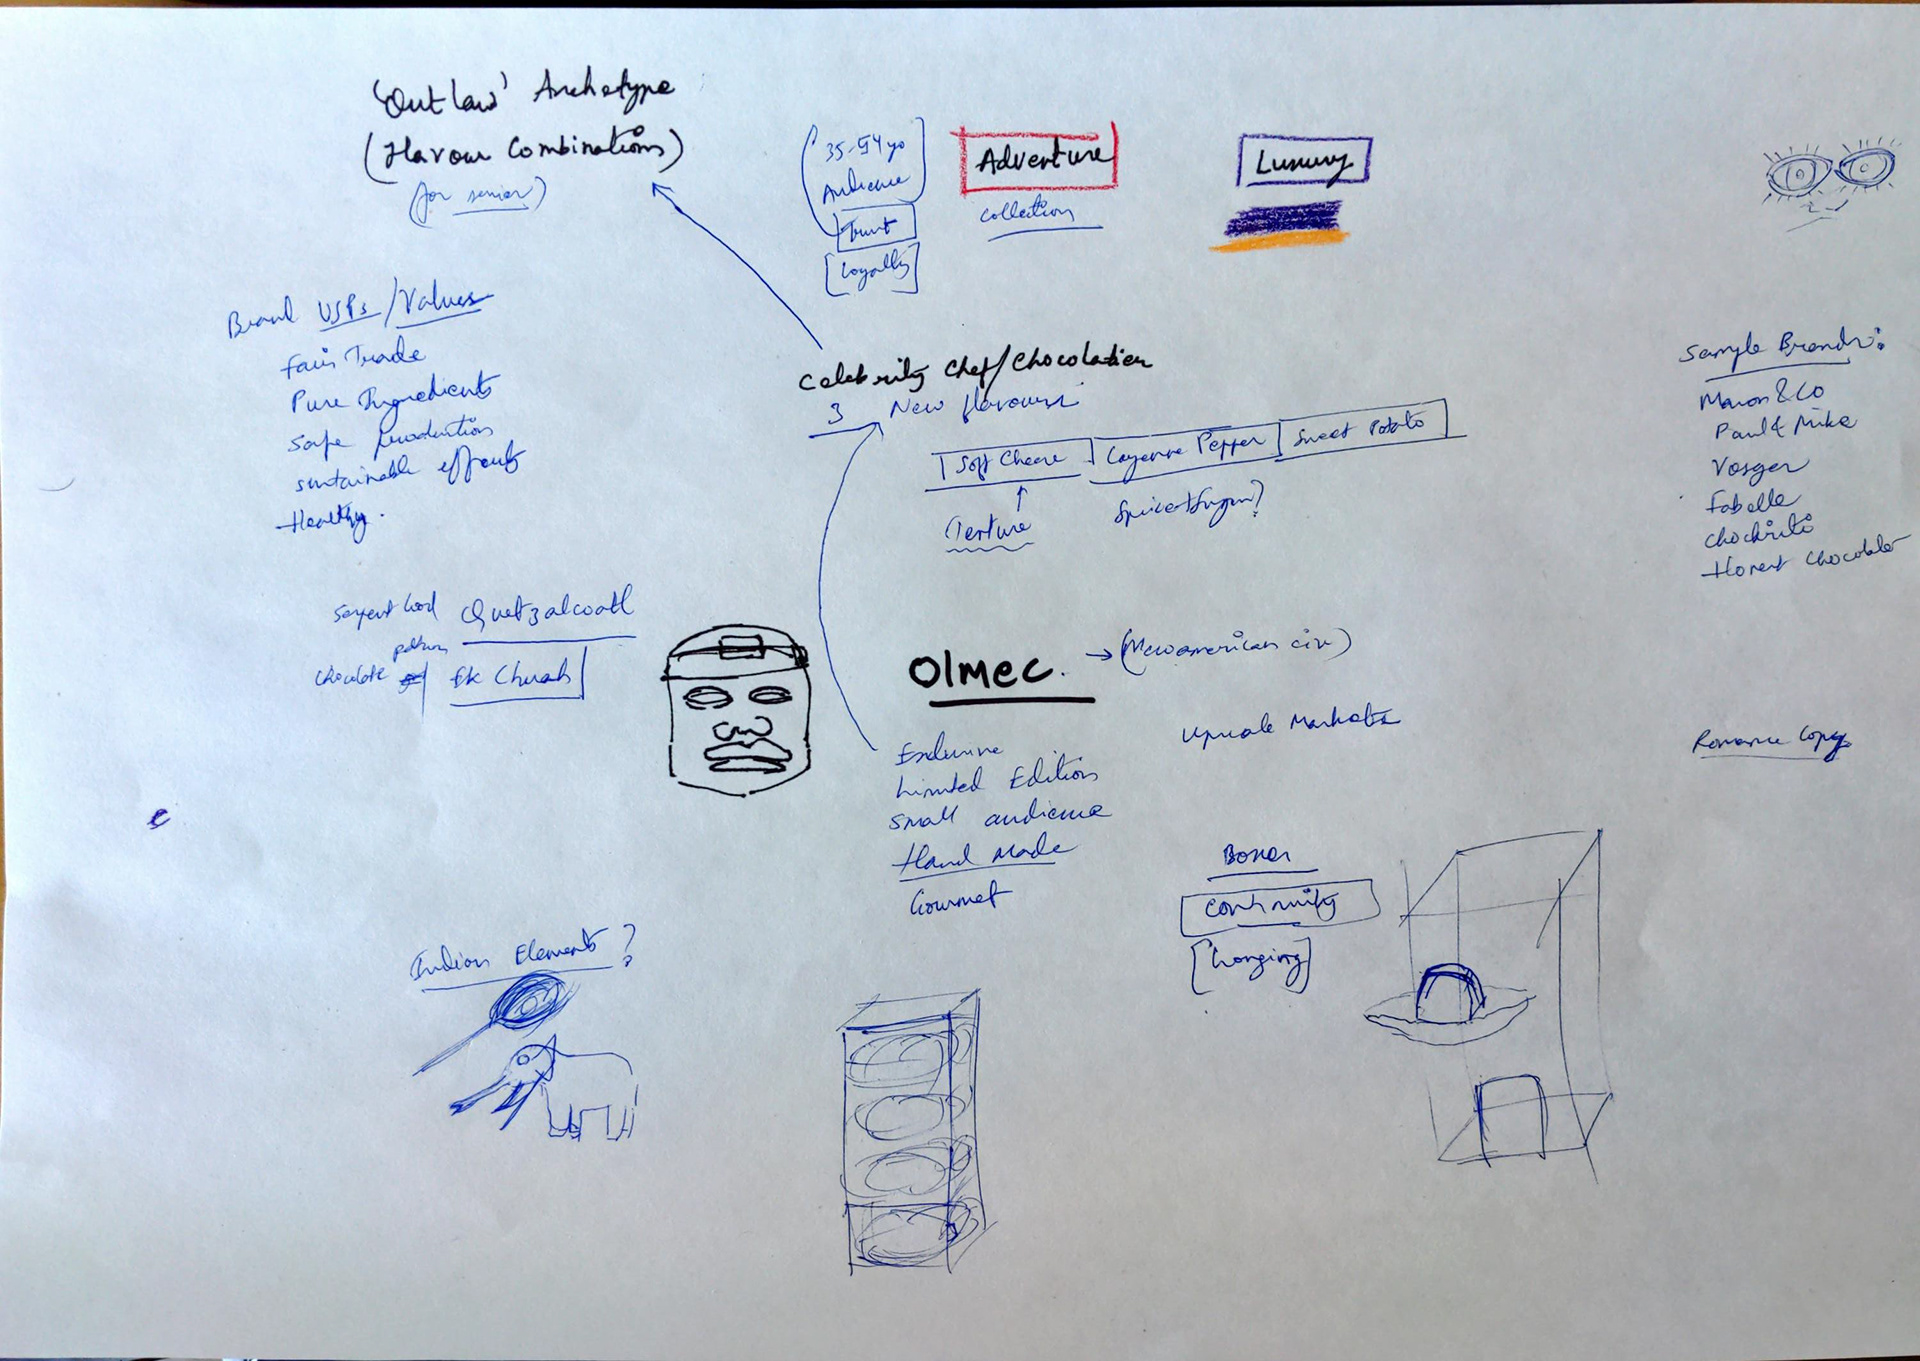 'Outlaw' Archetype
(Flavour Combinations)
(for senior)
35-54 yo
Audience
Trust
[Loyalty]
Adventure
collection
Luxury
Brand USPs/Values
Fair Trade
Pure Ingredients
Safe production
sustainable efforts
Healthy.
Celebrity Chef/Chocolatier
3 New flavours
Soft Cheese
Cayenne Pepper
Sweet Potato
Texture
Spice+Sugar?
Sample Brands:
Mason & Co
Paul & Mike
Vosges
Fabelle
Chokriti
Honest Chocolate
Serpent God Quetzalcoatl
patron
chocolate Ek Chuah
Olmec.
→ (Mesoamerican civ)
Exclusive
Limited Edition
Small audience
Hand Made
Gourmet
Upscale Markets
Romance Copy
Boxes
Continuity
Indian Elements?